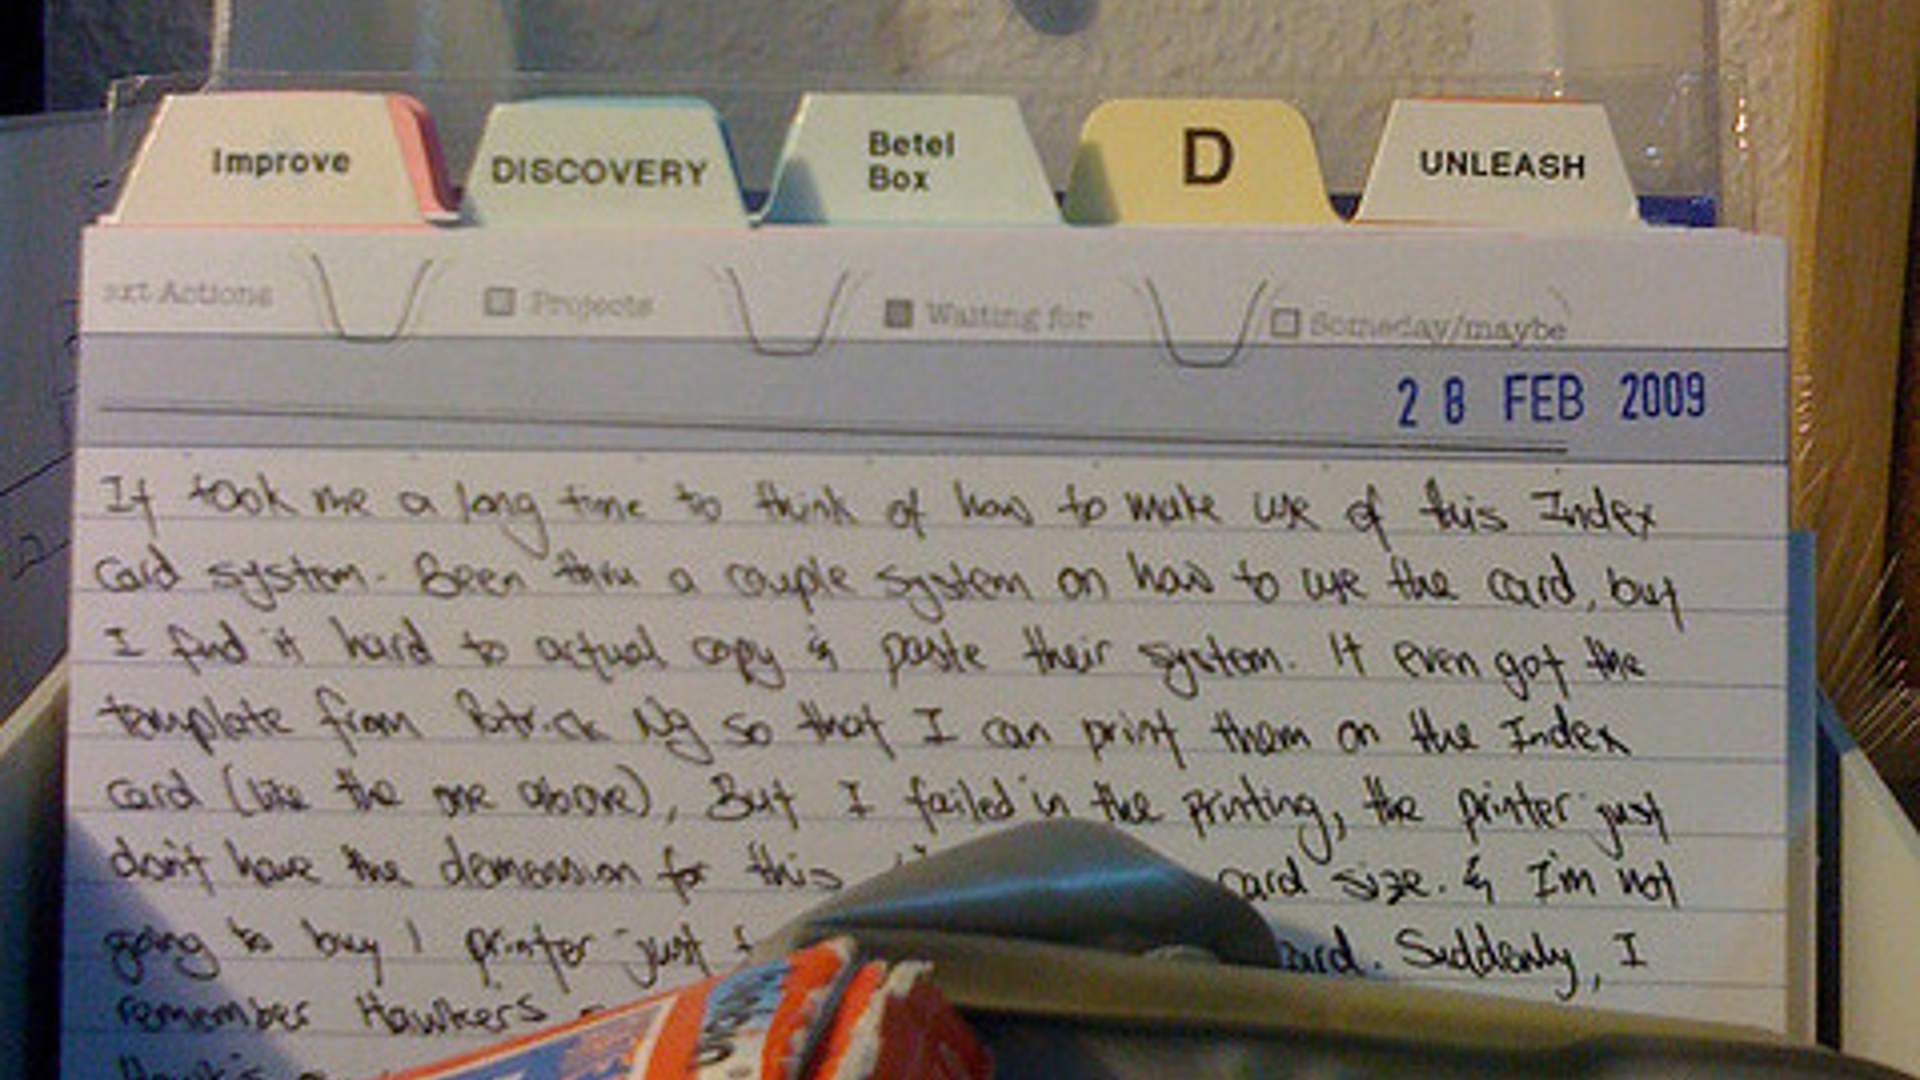 Improve
DISCOVERY
Betel
Box
D
UNLEASH
ext Actions
Projects
Waiting for
Someday/maybe
28 FEB 2009
It took me a long time to think of how to make use of this Index
Card system. Been thru a couple system on how to use the card, but
I find it hard to actual copy & paste their system. It even got the
template from Patrick Ng so that I can print them on the Index
card (like the one above), But I failed in the printing, the printer just
don't have the demension for this card size. & I'm not
going to buy 1 printer just card. Suddenly, I
remember Hawkers